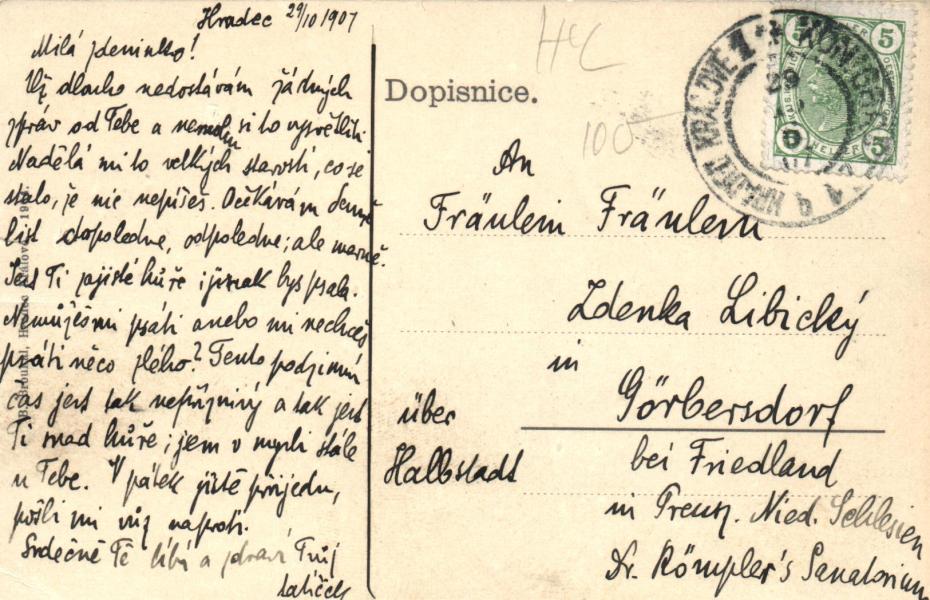 Hradec 29/10 1907
Milá Zdeninko!
Již dlouho nedostávám žádných
zpráv od Tebe a nemohu si to vysvětliti.
Nadělá mi to velkých starostí, co se
stalo, že nic nepíšeš. Očekávám denně
list dopoledne, odpoledne; ale marně.
Jest Ti zajisté hůře i jinak bys psala.
Nemůžeš mi psáti anebo mi nechceš
psáti něco zlého? Tento podzimní
čas jest tak nepříznivý a tak jest
Ti snad hůře; jsem v mysli stále
u Tebe. V pátek jistě přijedu,
pošli mi vůz naproti.
Srdečně Tě líbá a zdraví Tvůj
tatíček
HC
100
Dopisnice.
KÖNIGGR
HRADEC KRÁLOVÉ 1
29
5 5
5 5
HELLER
An
Fräulein Fräulein
Zdenka Libický
in
Görbersdorf
über
Halbstadt
bei Friedland
in Preuß. Nied. Schlesien
Dr. Römpler's Sanatorium